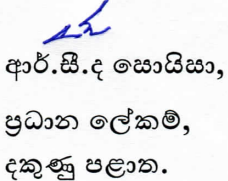 ආර්.සී.ද සොයිසා,
ප්‍රධාන ලේකම්,
දකුණු පළාත.